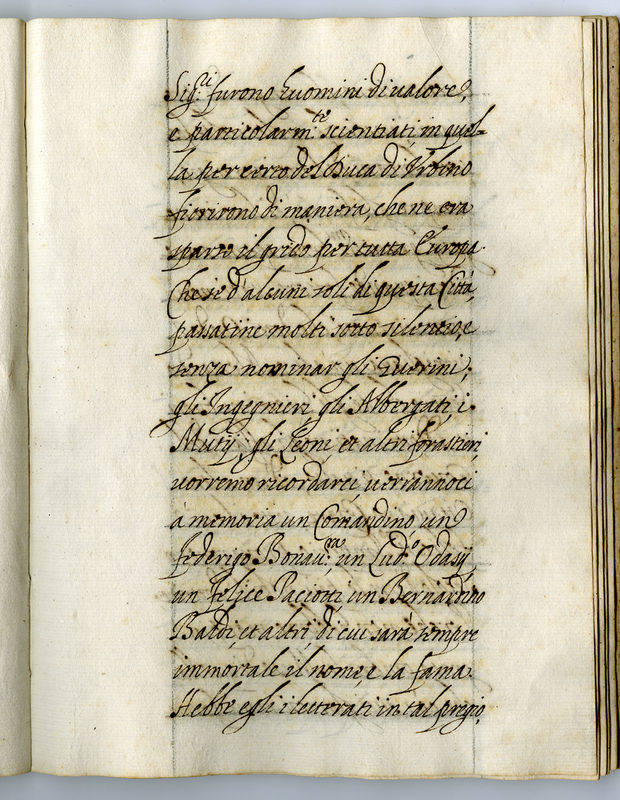 Sig.ri furono huomini di valore,
e particolarm.te scientiati, in quel=
la per certo del Duca di Urbino
fiorirono di maniera, che ne era
sparso il grido per tutta Europa.
Che se d'alcuni soli di questa Città,
passatine molti sotto silentio, e
senza nominar gli Guerini,
gli Ingegnieri, gli Albergati, i
Mutij, gli Leoni, et altri forastieri,
vorremo ricordarci, verrannoci
à memoria un Comandino, un
Federigo Bonav.ra, un Lud.o Odasij,
un Felice Paciotti, un Bernardino
Baldi, et altri, di cui sarà sempre
immortale il nome, e la fama.
Hebbe egli i letterati in tal pregio,